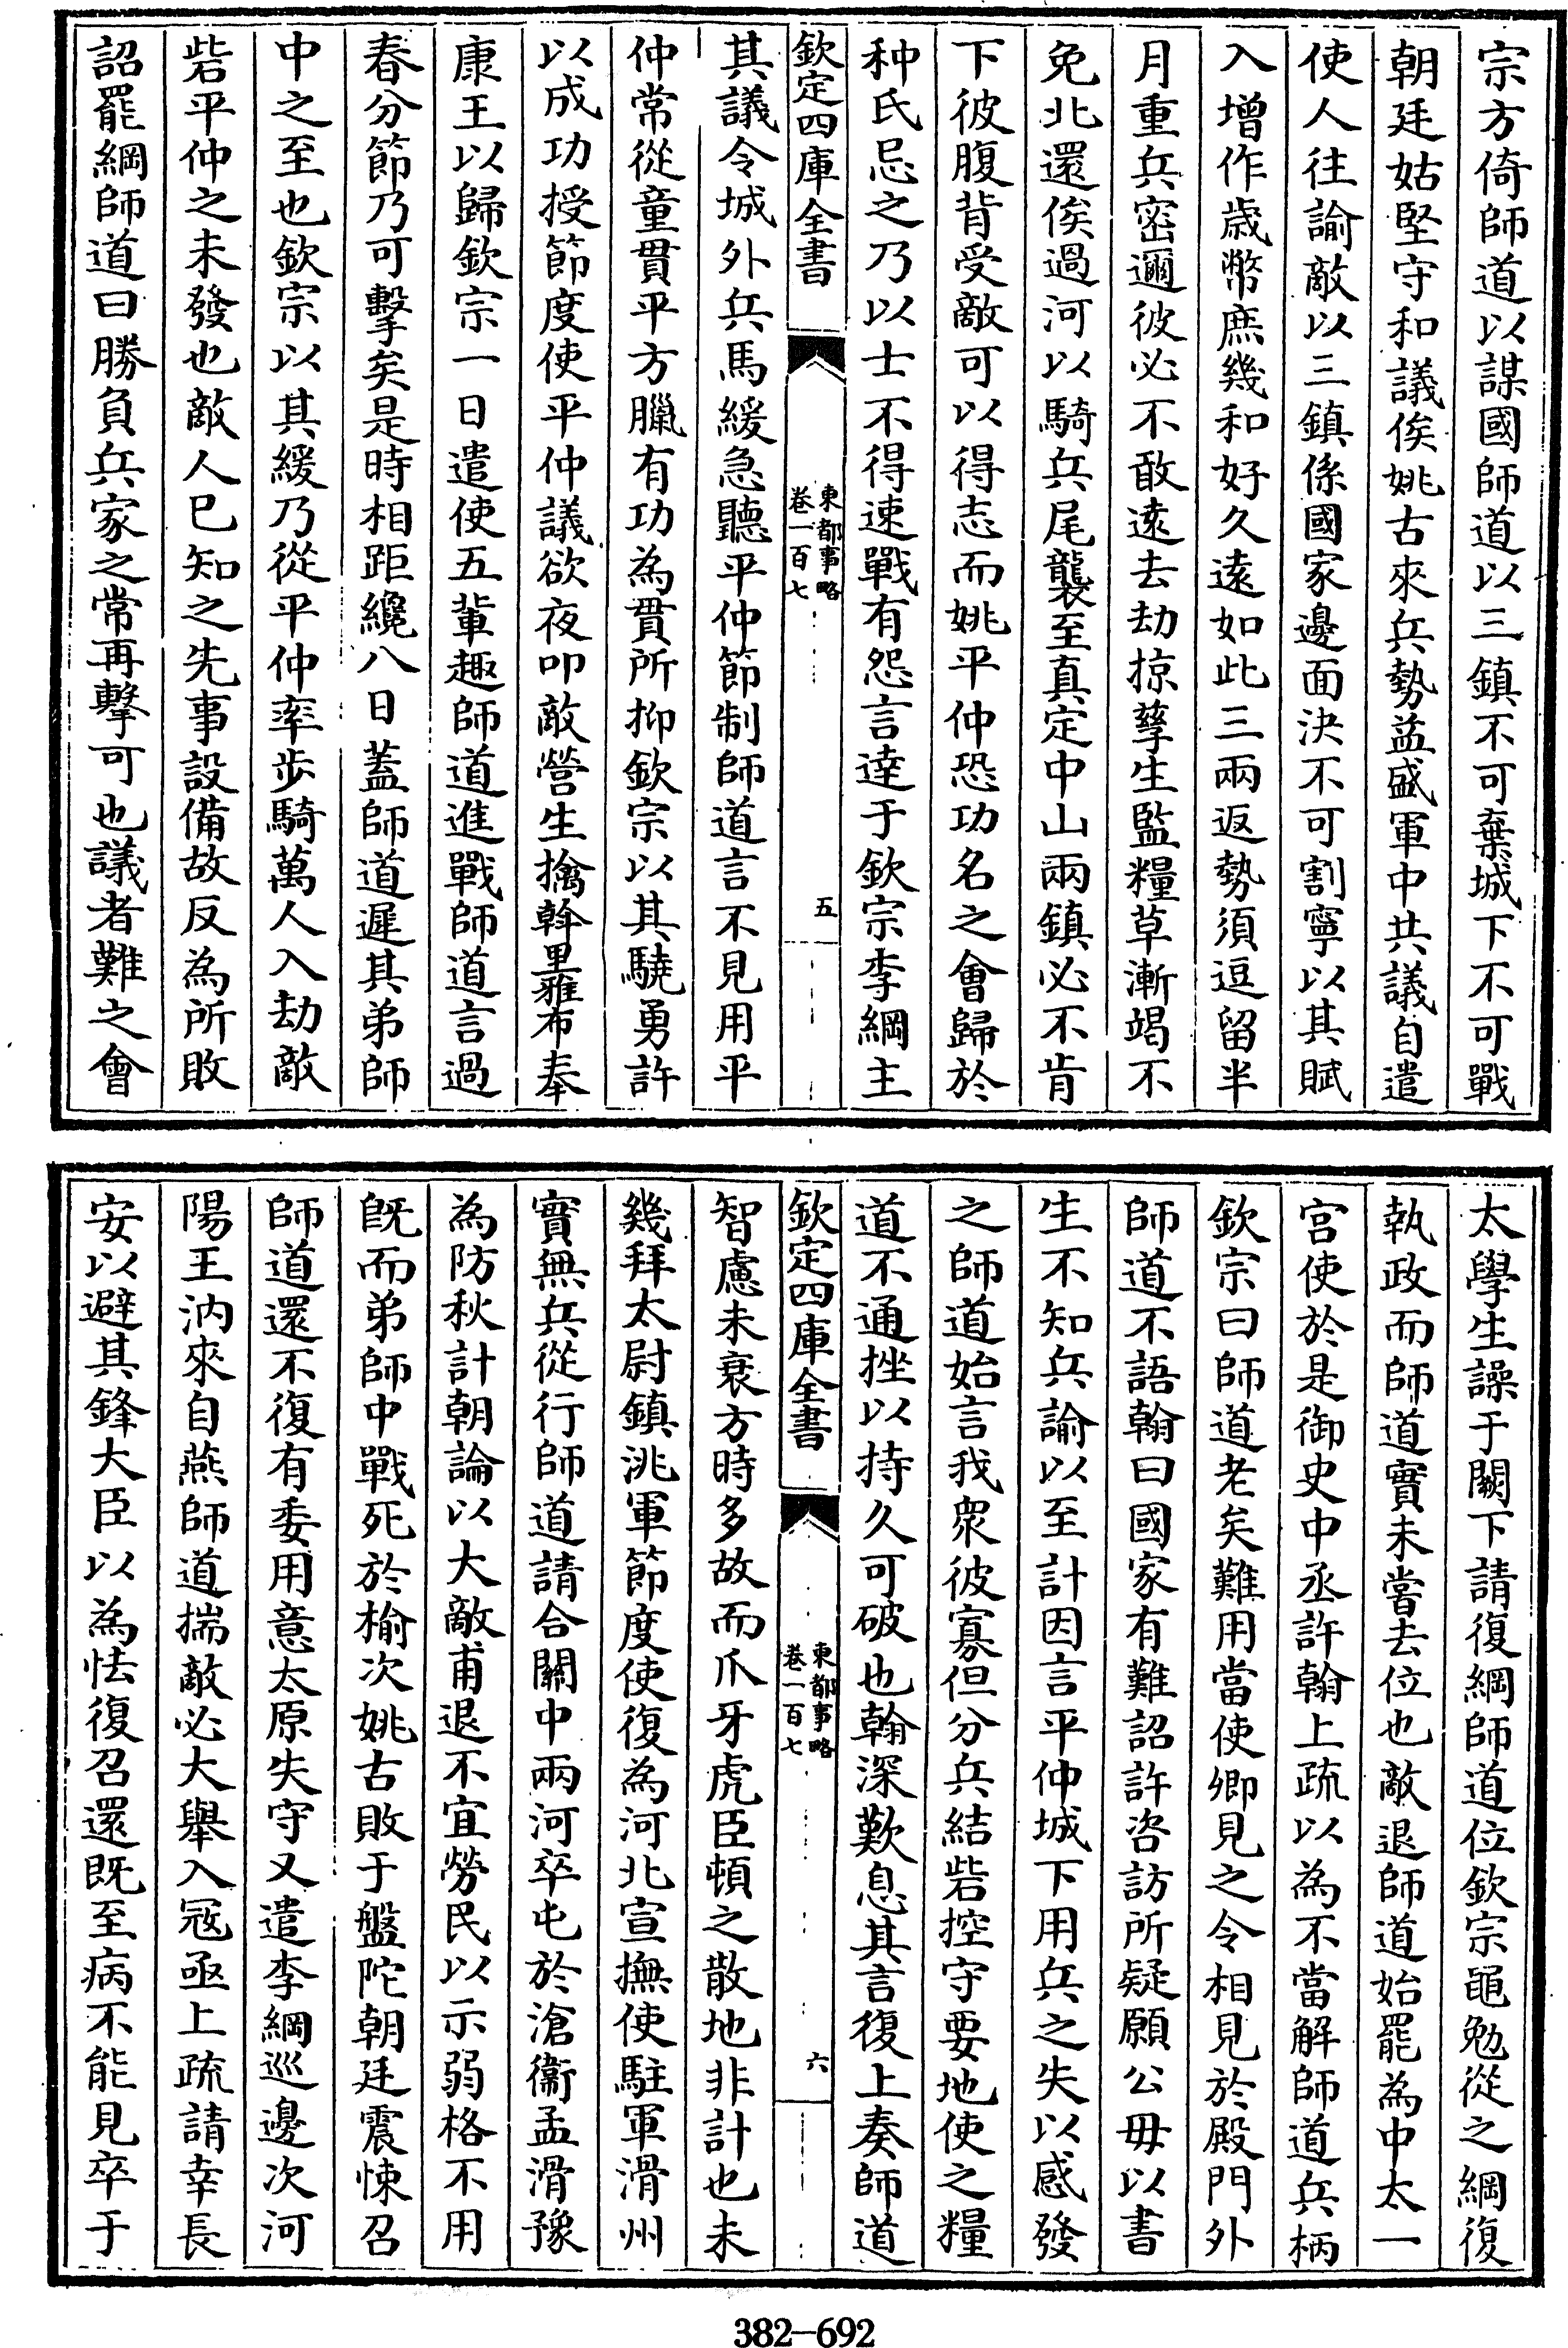 宗方倚師道以謀國師道以三鎮不可棄城下不可戰
朝廷姑堅守和議俟姚古來兵勢益盛軍中共議自遣
使人往諭敵以三鎮係國家邊面決不可割寧以其賦
入增作歲幣庶幾和好久遠如此三兩返勢須逗留半
月重兵密邇彼必不敢遠去劫掠孳生監糧草漸竭不
免北還俟過河以騎兵尾襲至真定中山兩鎮必不肯
下彼腹背受敵可以得志而姚平仲恐功名之會歸於
种氏忌之乃以士不得速戰有怨言達于欽宗李綱主
欽定四庫全書
東都事略
卷一百七
五
其議令城外兵馬緩急聽平仲節制師道言不見用平
仲常從童貫平方臘有功為貫所抑欽宗以其驍勇許
以成功授節度使平仲議欲夜叩敵營生擒斡里雅布奉
康王以歸欽宗一日遣使五輩趣師道進戰師道言過
春分節乃可擊矣是時相距纔八日蓋師道遲其弟師
中之至也欽宗以其緩乃從平仲率步騎萬人入劫敵
砦平仲之未發也敵人已知之先事設備故反為所敗
詔罷綱師道曰勝負兵家之常再擊可也議者難之會
太學生譟于闕下請復綱師道位欽宗黽勉從之綱復
執政而師道實未嘗去位也敵退師道始罷為中太一
宮使於是御史中丞許翰上疏以為不當解師道兵柄
欽宗曰師道老矣難用當使卿見之令相見於殿門外
師道不語翰曰國家有難詔許咨訪所疑願公毋以書
生不知兵諭以至計因言平仲城下用兵之失以感發
之師道始言我衆彼寡但分兵結砦控守要地使之糧
道不通挫以持久可破也翰深歎息其言復上奏師道
欽定四庫全書
東都事略
卷一百七
六
智慮未衰方時多故而爪牙虎臣頓之散地非計也未
幾拜太尉鎮洮軍節度使復為河北宣撫使駐軍滑州
實無兵從行師道請合關中兩河卒屯於滄衞孟滑豫
為防秋計朝論以大敵甫退不宜勞民以示弱格不用
既而弟師中戰死於榆次姚古敗于盤陀朝廷震悚召
師道還不復有委用意太原失守又遣李綱巡邊次河
陽王汭來自燕師道揣敵必大舉入冦亟上疏請幸長
安以避其鋒大臣以為怯復召還既至病不能見卒于
382—692